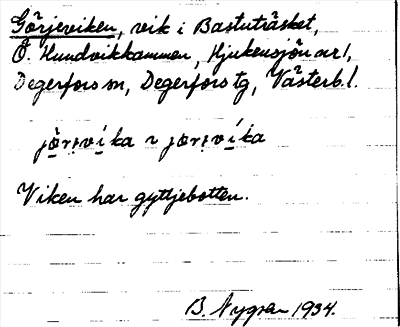 Görjeviken, vik i Bastuträsket,
Ö. Hundvikkammen, Hjukensjön ar1,
Degerfors sn, Degerfors tg, Västerb.l.
Viken har gyttjebotten.
B. Nygren 1934.